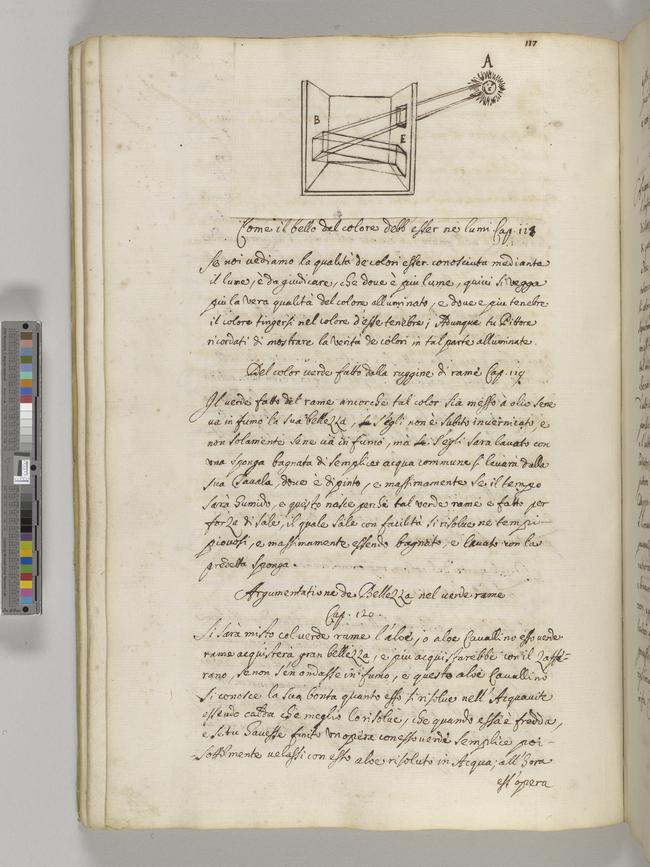 117
A
B
E
Come il bello del colore debb esser ne lumi Cap. 118
Se noi vediamo la qualità de colori esser conosciuta mediante
il lume, è da giudicare, che dove e piu lume, quivi si vegga
più la vera qualità del colore alluminato, e dove e piu tenebre
il colore tingersi nel colore d'esse tenebre; Adunque tu Pittore
ricordati di mostrare la verità de colori in tal parte alluminate.
Del color verde fatto dalla ruggine di rame Cap. 119
Il verde fatto del rame ancorche tal color sia messo a olio sene
va in fumo la sua bellezza, se s'egli non è subito invernicato, e
non solamente sene va in fumo, mà se s'egli sarà lavato con
una sponga bagnata di semplice acqua commune si leverà dalla
sua Tavola, dove è dipinto, e massimamente se il tempo
sarà humido, e questo nasce perchè tal verde rame e fatto per
forza di sale, il quale sale con facilità si risolve ne tempi
piovosi, e massimamente essendo bagnato, e lavato con la
predetta sponga.
Argumentatione de Bellezza nel verde rame
Cap. 120.
Si sarà misto col verde rame l'aloe, o aloe Cavallino esso verde
rame acquisterà gran bellezza, e più acquistarebbe con il Zaffe-
rano, se non s'en andasse in fumo, e questo aloe Cavallino
si conosce la sua bontà quanto esso si risolve nell'Acquavite
essendo calda che meglio lo risolve, che quando essa è fredda,
e si tu havesse finito un opera con esso verde semplice poi
sottilmente velassi con esto aloe risoluto in Acqua, all'hora
est'opera